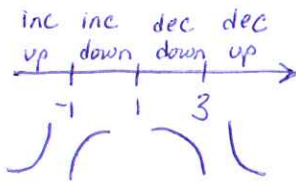 inc inc dec dec
up down down up
-1 1 3